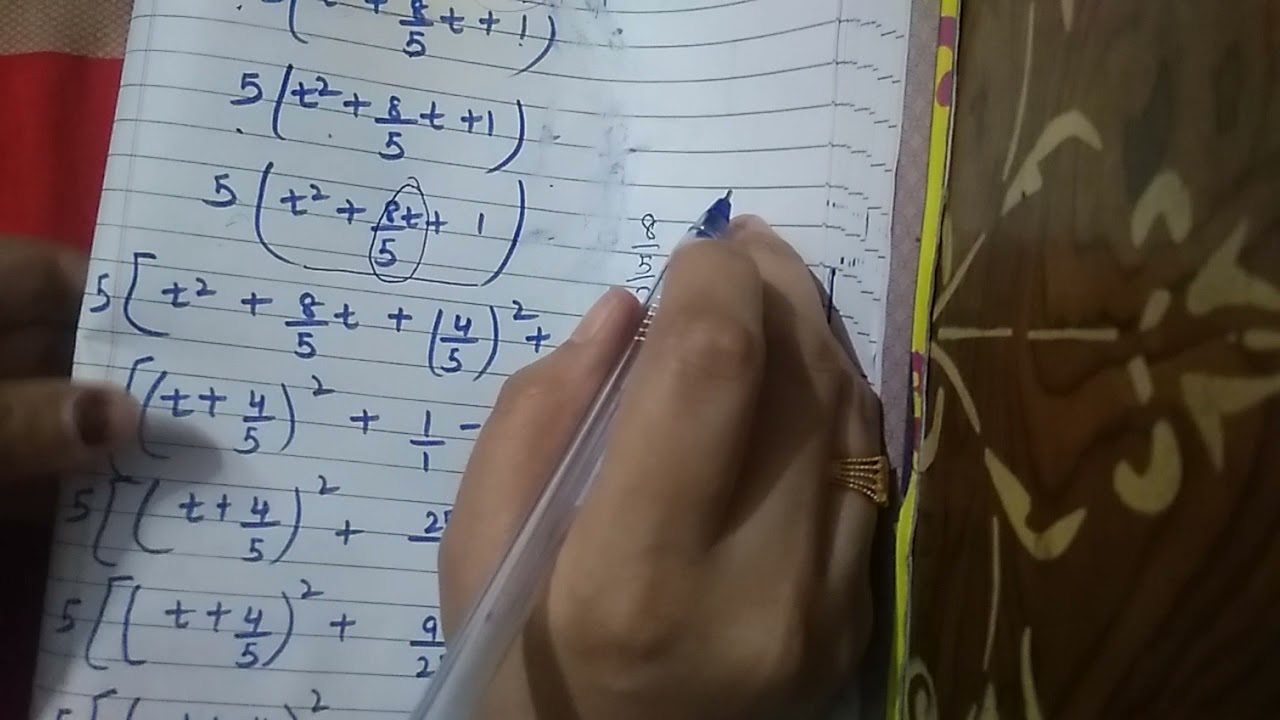 8/5 t + 1)
5(t² + 8/5 t + 1)
5(t² + 8t/5 + 1)
8/5/
5[t² + 8/5 t + (4/5)² +
[(t + 4/5)² + 1/1 -
5[(t + 4/5)² +
5[(t + 4/5)² + 9/